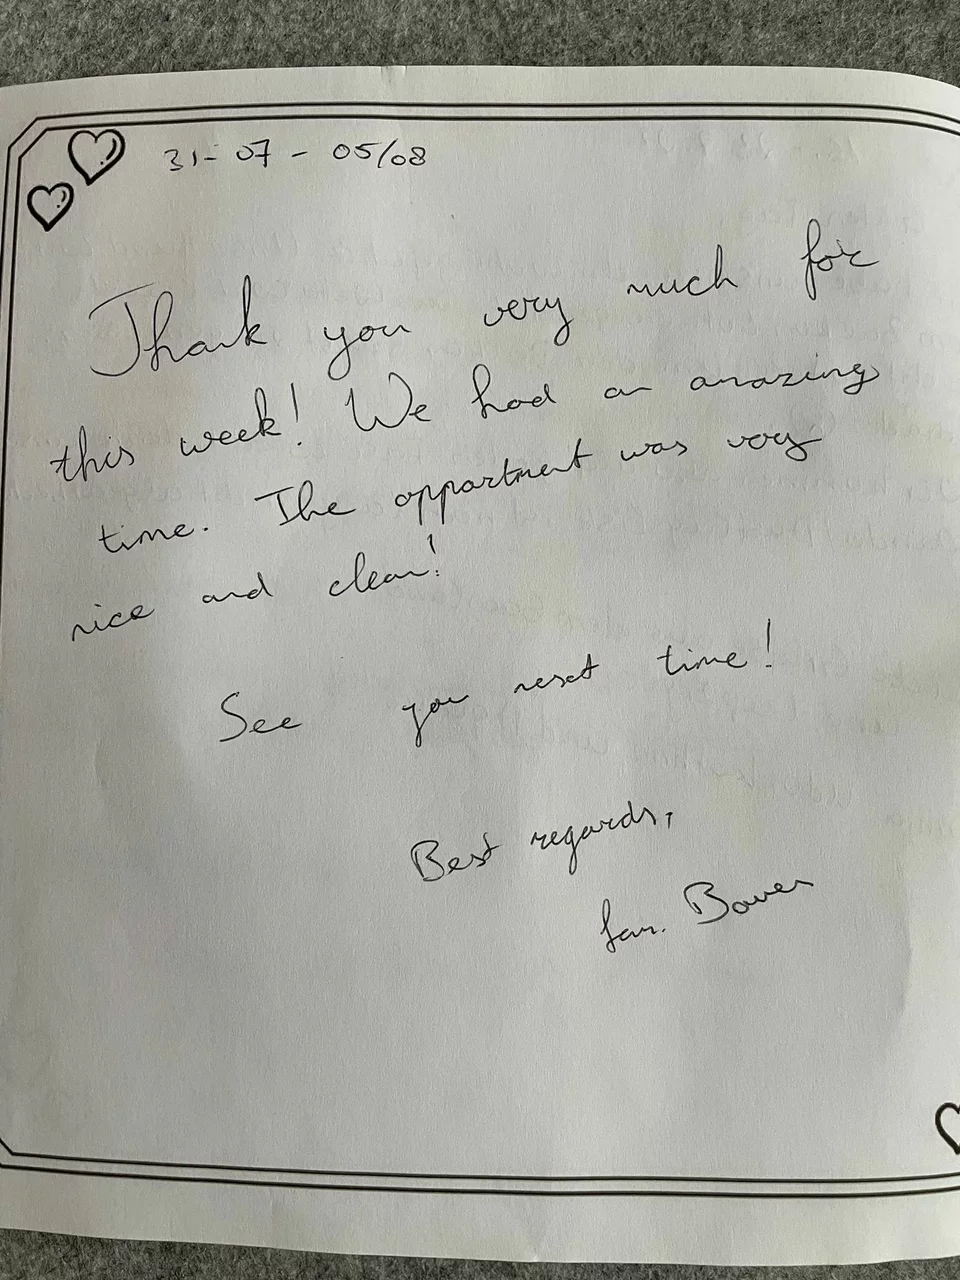 31-07 - 05/08
Thank you very much for
this week! We had an amazing
time. The appartment was very
nice and clean!
See you next time!
Best regards,
fam. Bouwer